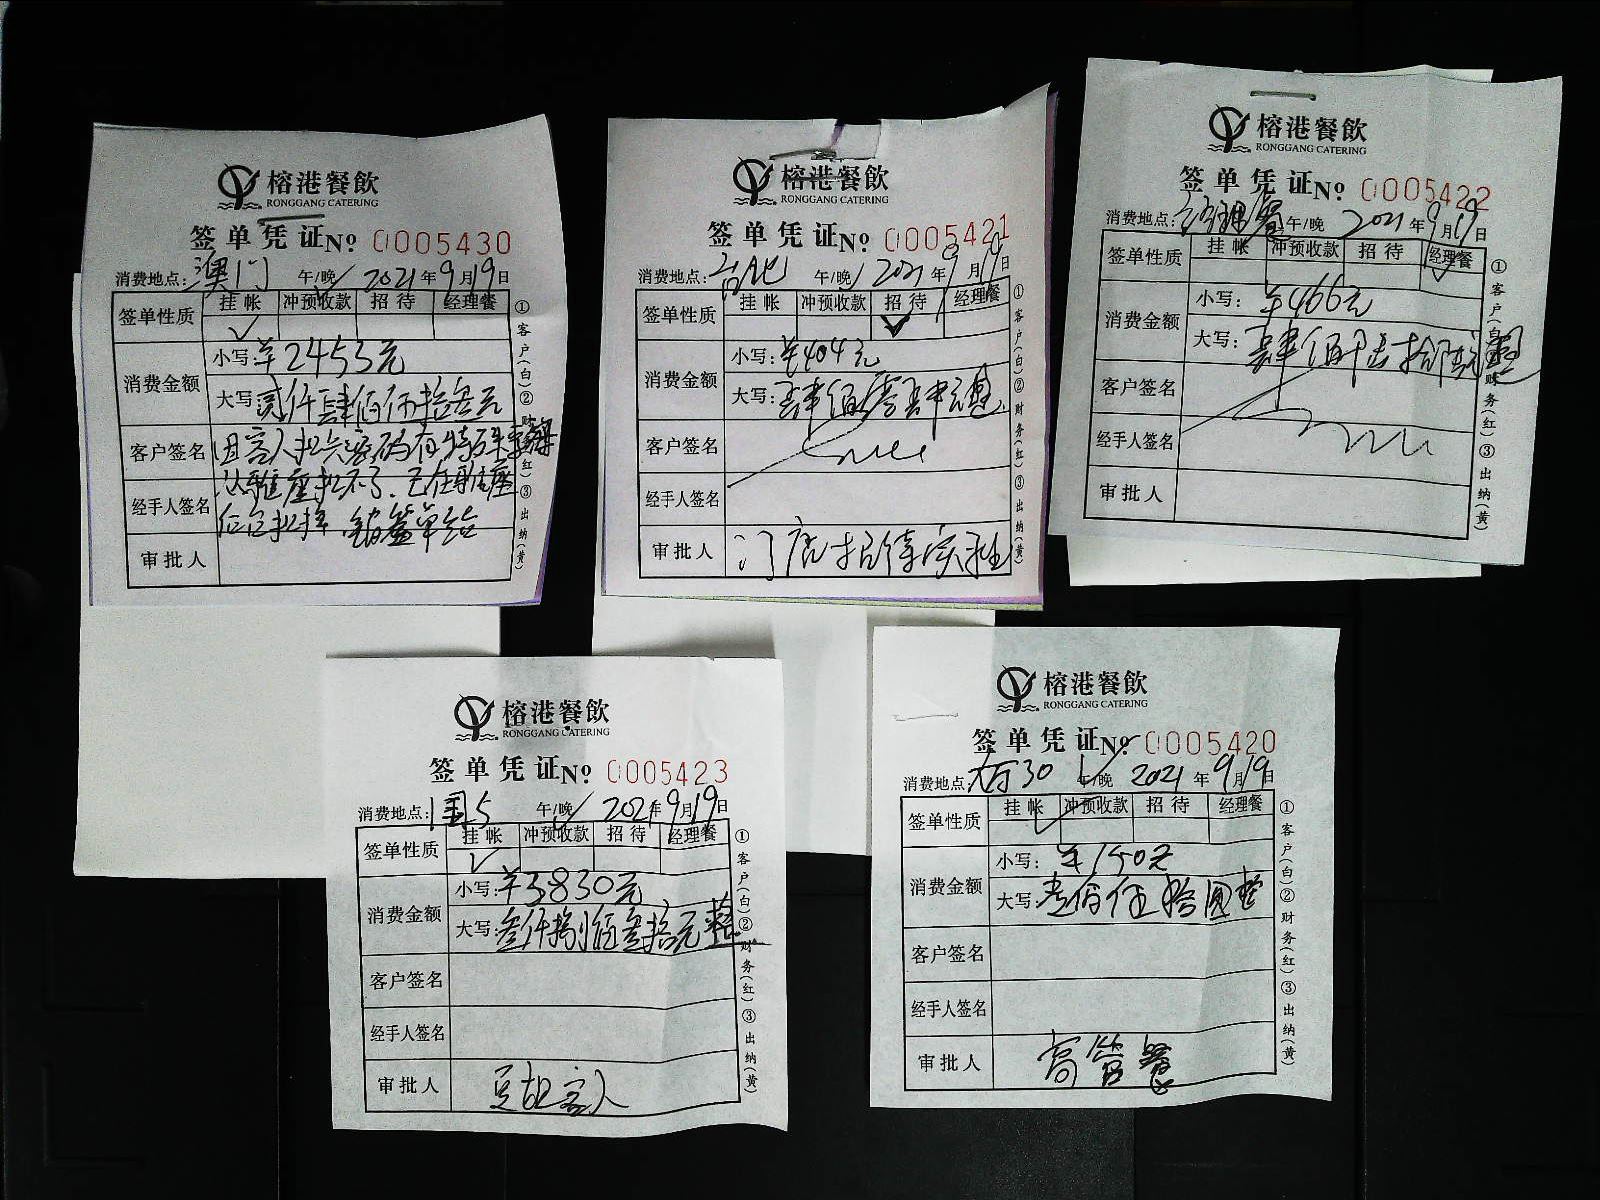 榕港餐飲
RONGGANG CATERING
签单凭证 No 0005430
消费地点: 澳门 午/晚 2021年9月19日
签单性质 挂帐 冲预收款 招待 经理餐
✓
消费金额 小写: ¥2453元
大写: 贰仟肆佰伍拾叁元
客户签名
经手人签名
审批人
①客户(白)②财务(红)③出纳(黄)
榕港餐飲
RONGGANG CATERING
签单凭证 No 0005421
消费地点: 午/晚 2021年9月19日
签单性质 挂帐 冲预收款 招待 经理餐
✓
消费金额 小写: ¥404元
大写: 肆佰零肆元整
客户签名
经手人签名
审批人 门店招待
①客户(白)②财务(红)③出纳(黄)
榕港餐飲
RONGGANG CATERING
签单凭证 No 0005422
消费地点: 经理餐 午/晚 2021年9月19日
签单性质 挂帐 冲预收款 招待 经理餐
✓
消费金额 小写: ¥466元
大写: 肆佰陆拾陆元整
客户签名
经手人签名
审批人
①客户(白)②财务(红)③出纳(黄)
榕港餐飲
RONGGANG CATERING
签单凭证 No 0005423
消费地点: 国5 午/晚 2021年9月19日
签单性质 挂帐 冲预收款 招待 经理餐
✓
消费金额 小写: ¥3830元
大写: 叁仟捌佰叁拾元整
客户签名
经手人签名
审批人 客人
①客户(白)②财务(红)③出纳(黄)
榕港餐飲
RONGGANG CATERING
签单凭证 No 0005420
消费地点: 大厅30 午/晚 2021年9月19日
签单性质 挂帐 冲预收款 招待 经理餐
✓
消费金额 小写: ¥150元
大写: 壹佰伍拾圆整
客户签名
经手人签名
审批人 高管餐
①客户(白)②财务(红)③出纳(黄)